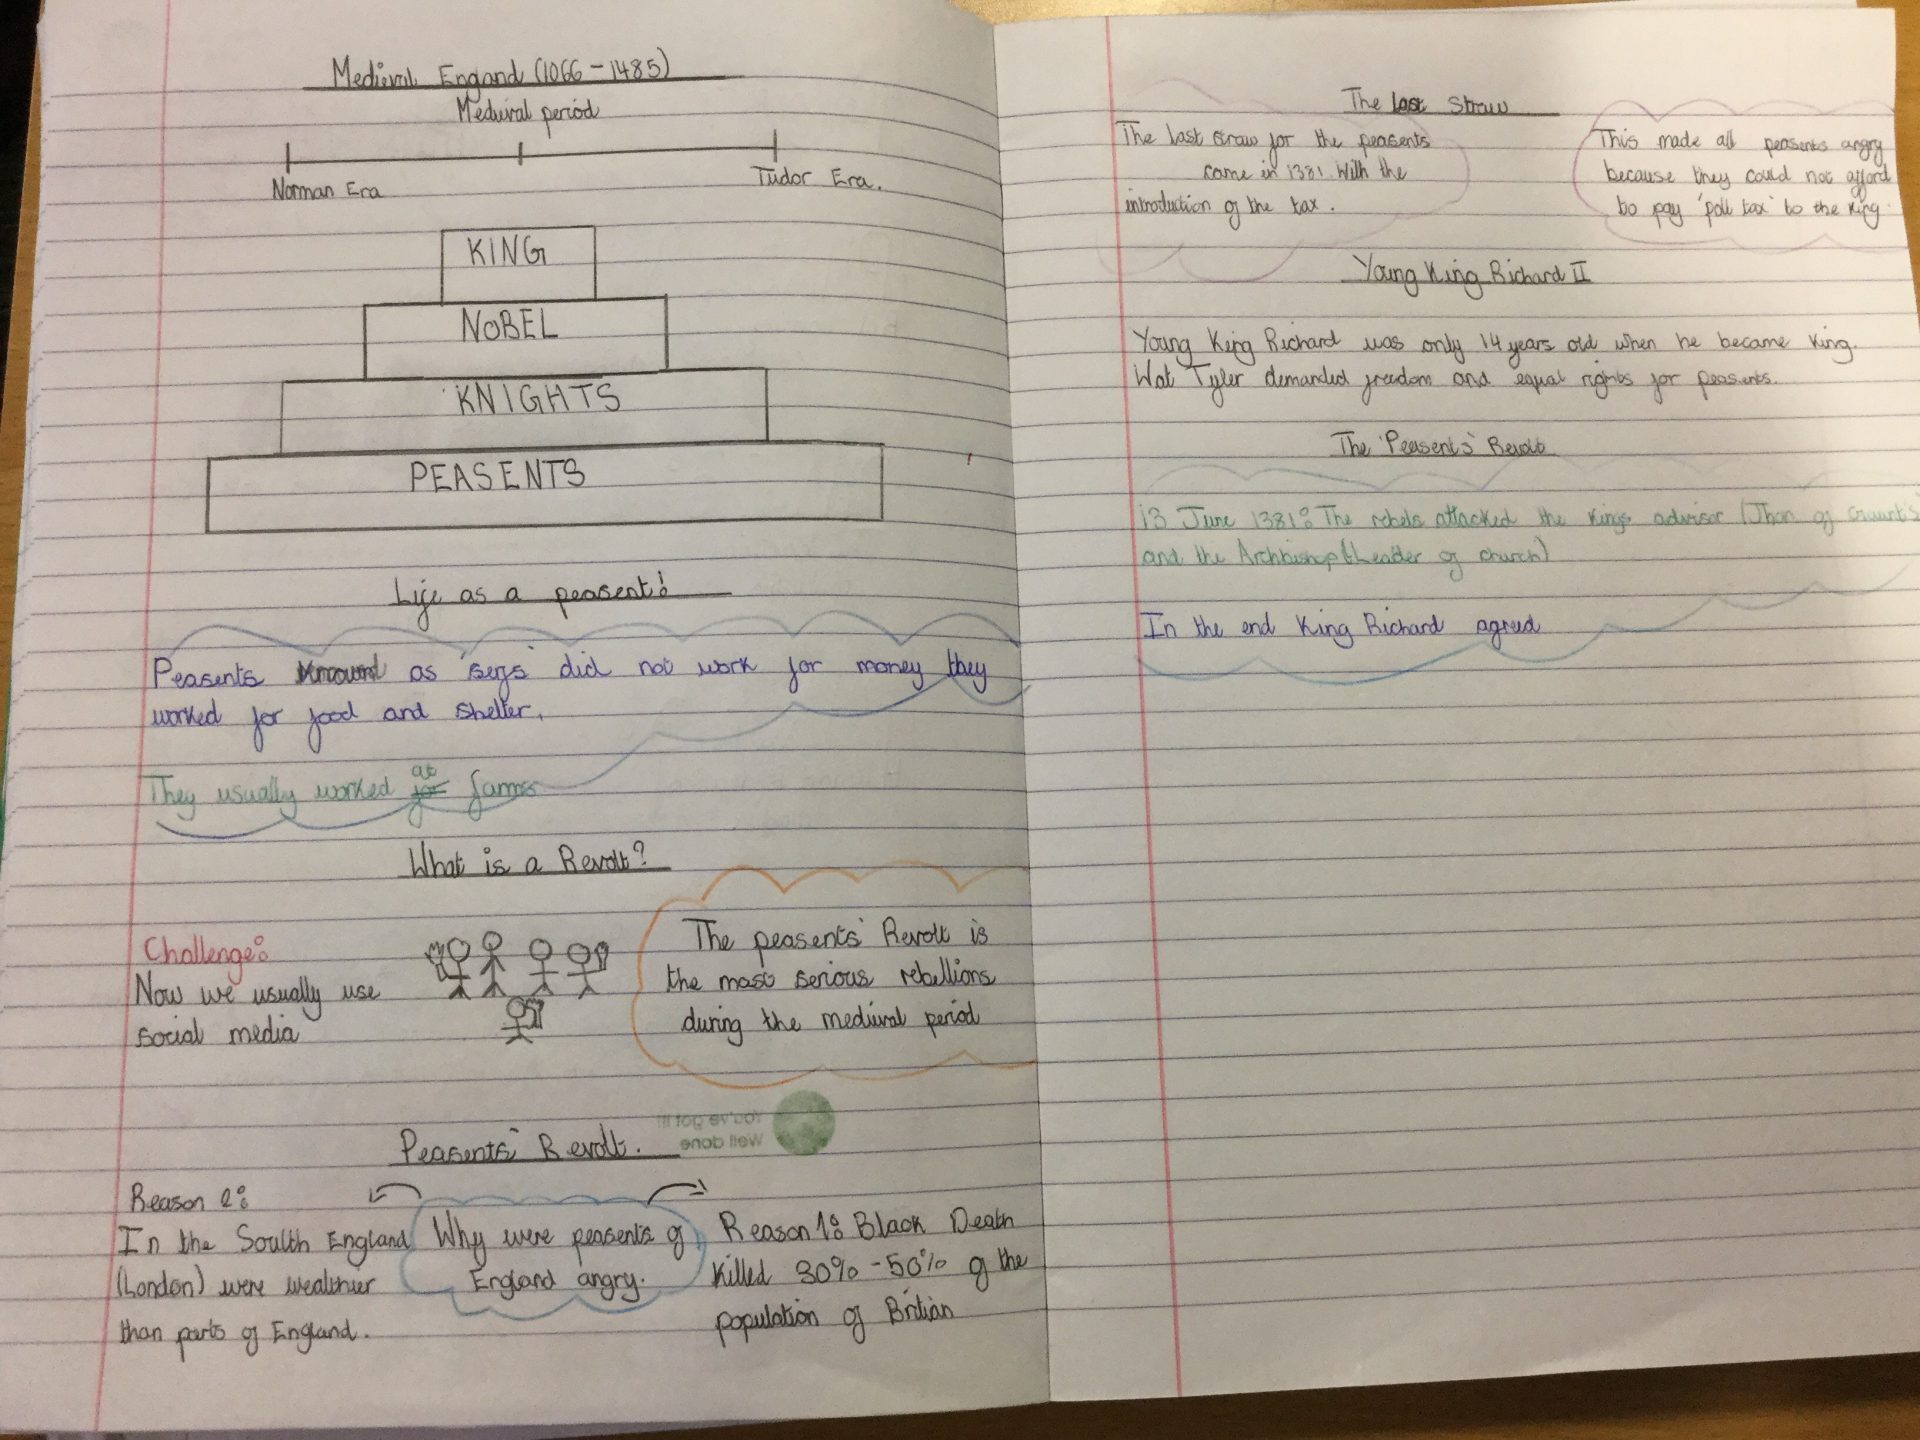 Medieval England (1066-1485)
Medieval period
Norman Era
Tudor Era.
KING
NOBEL
KNIGHTS
PEASENTS
Life as a peasent!
Peasents known as 'serfs' did not work for money they
worked for food and shelter.
They usually worked at for farms
What is a Revolt?
Challenge:
Now we usually use
social media
The peasents' Revolt is
the most serious rebellions
during the medieval period
You've got it!
Well done
Peasents' Revolt.
Reason 2:
In the South England
(London) were wealthier
than parts of England.
Why were peasents of
England angry.
Reason 1: Black Death
killed 30% - 50% of the
population of Britian
The last straw
The last straw for the peasents
came in 1381. With the
introduction of the tax.
This made all peasents angry
because they could not afford
to pay 'poll tax' to the king.
Young King Richard II
Young King Richard was only 14 years old when he became king.
Wat Tyler demanded freedom and equal rights for peasents.
The 'Peasents' Revolt
13 June 1381: The rebels attacked the kings advisor (Jhon of
and the Archbishop (Leader of church)
In the end King Richard agreed